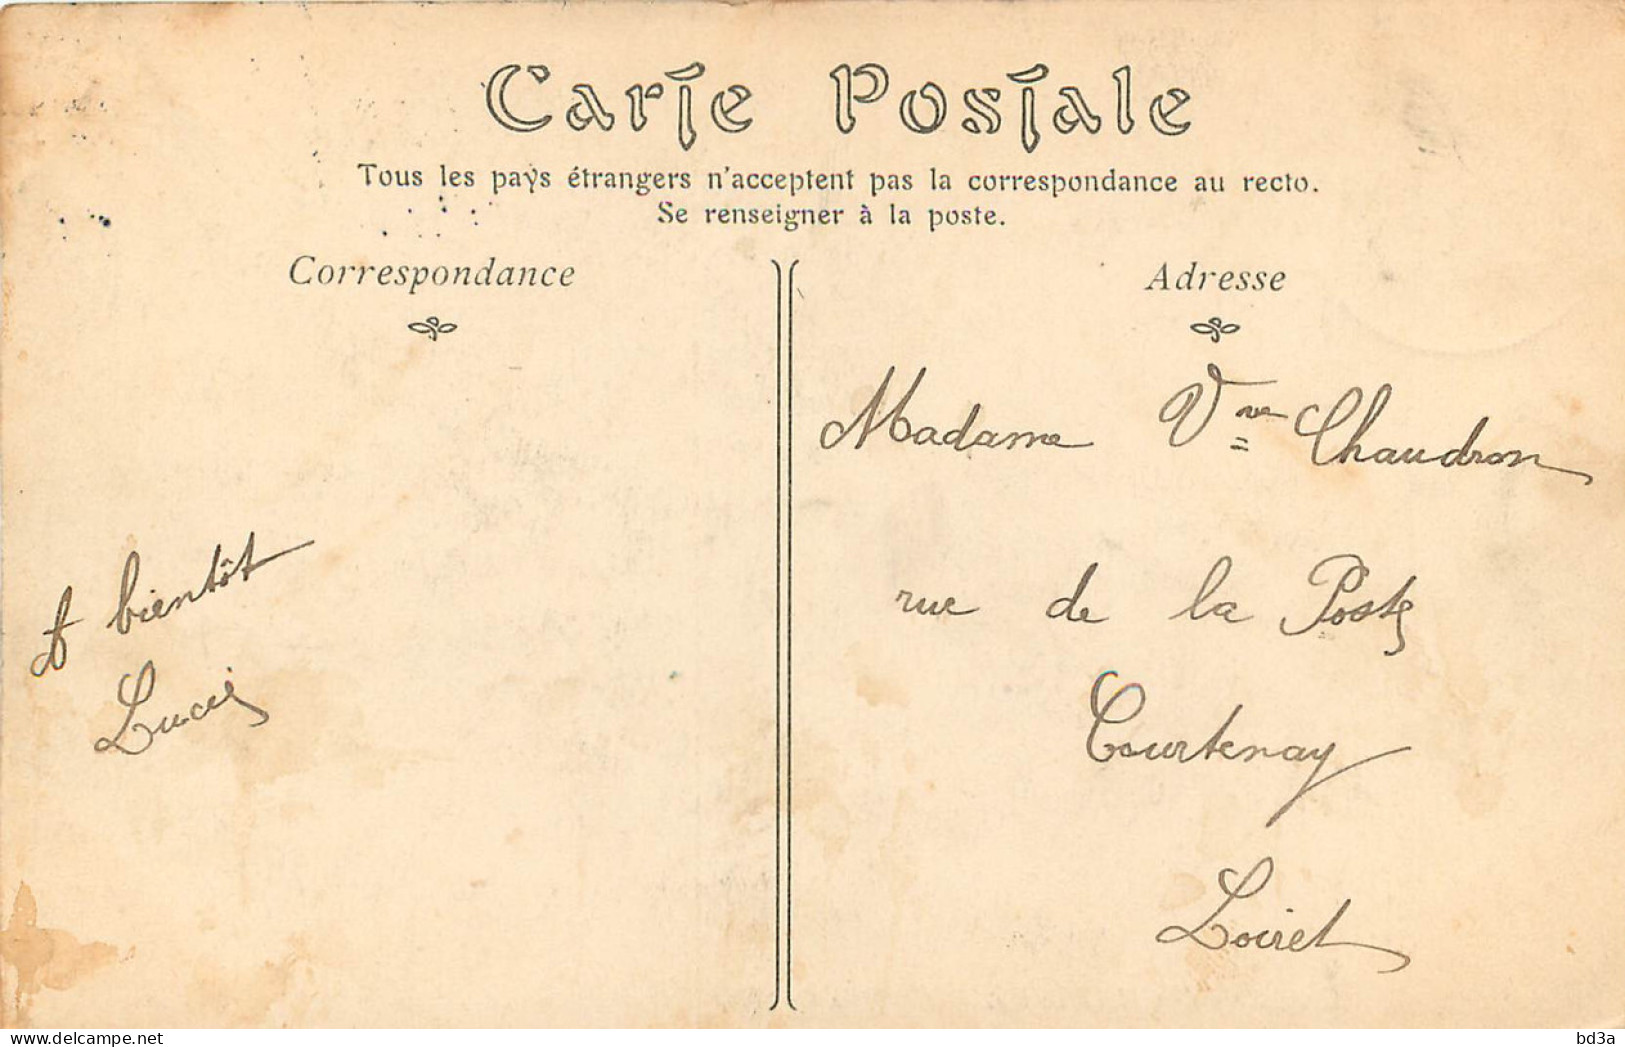 Carte Postale
Tous les pays étrangers n'acceptent pas la correspondance au recto.
Se renseigner à la poste.
Correspondance
A bientôt
Lucie
Adresse
Madame Vve Chaudron
rue de la Poste
Courtenay
Loiret
delcampe.net
bd3a